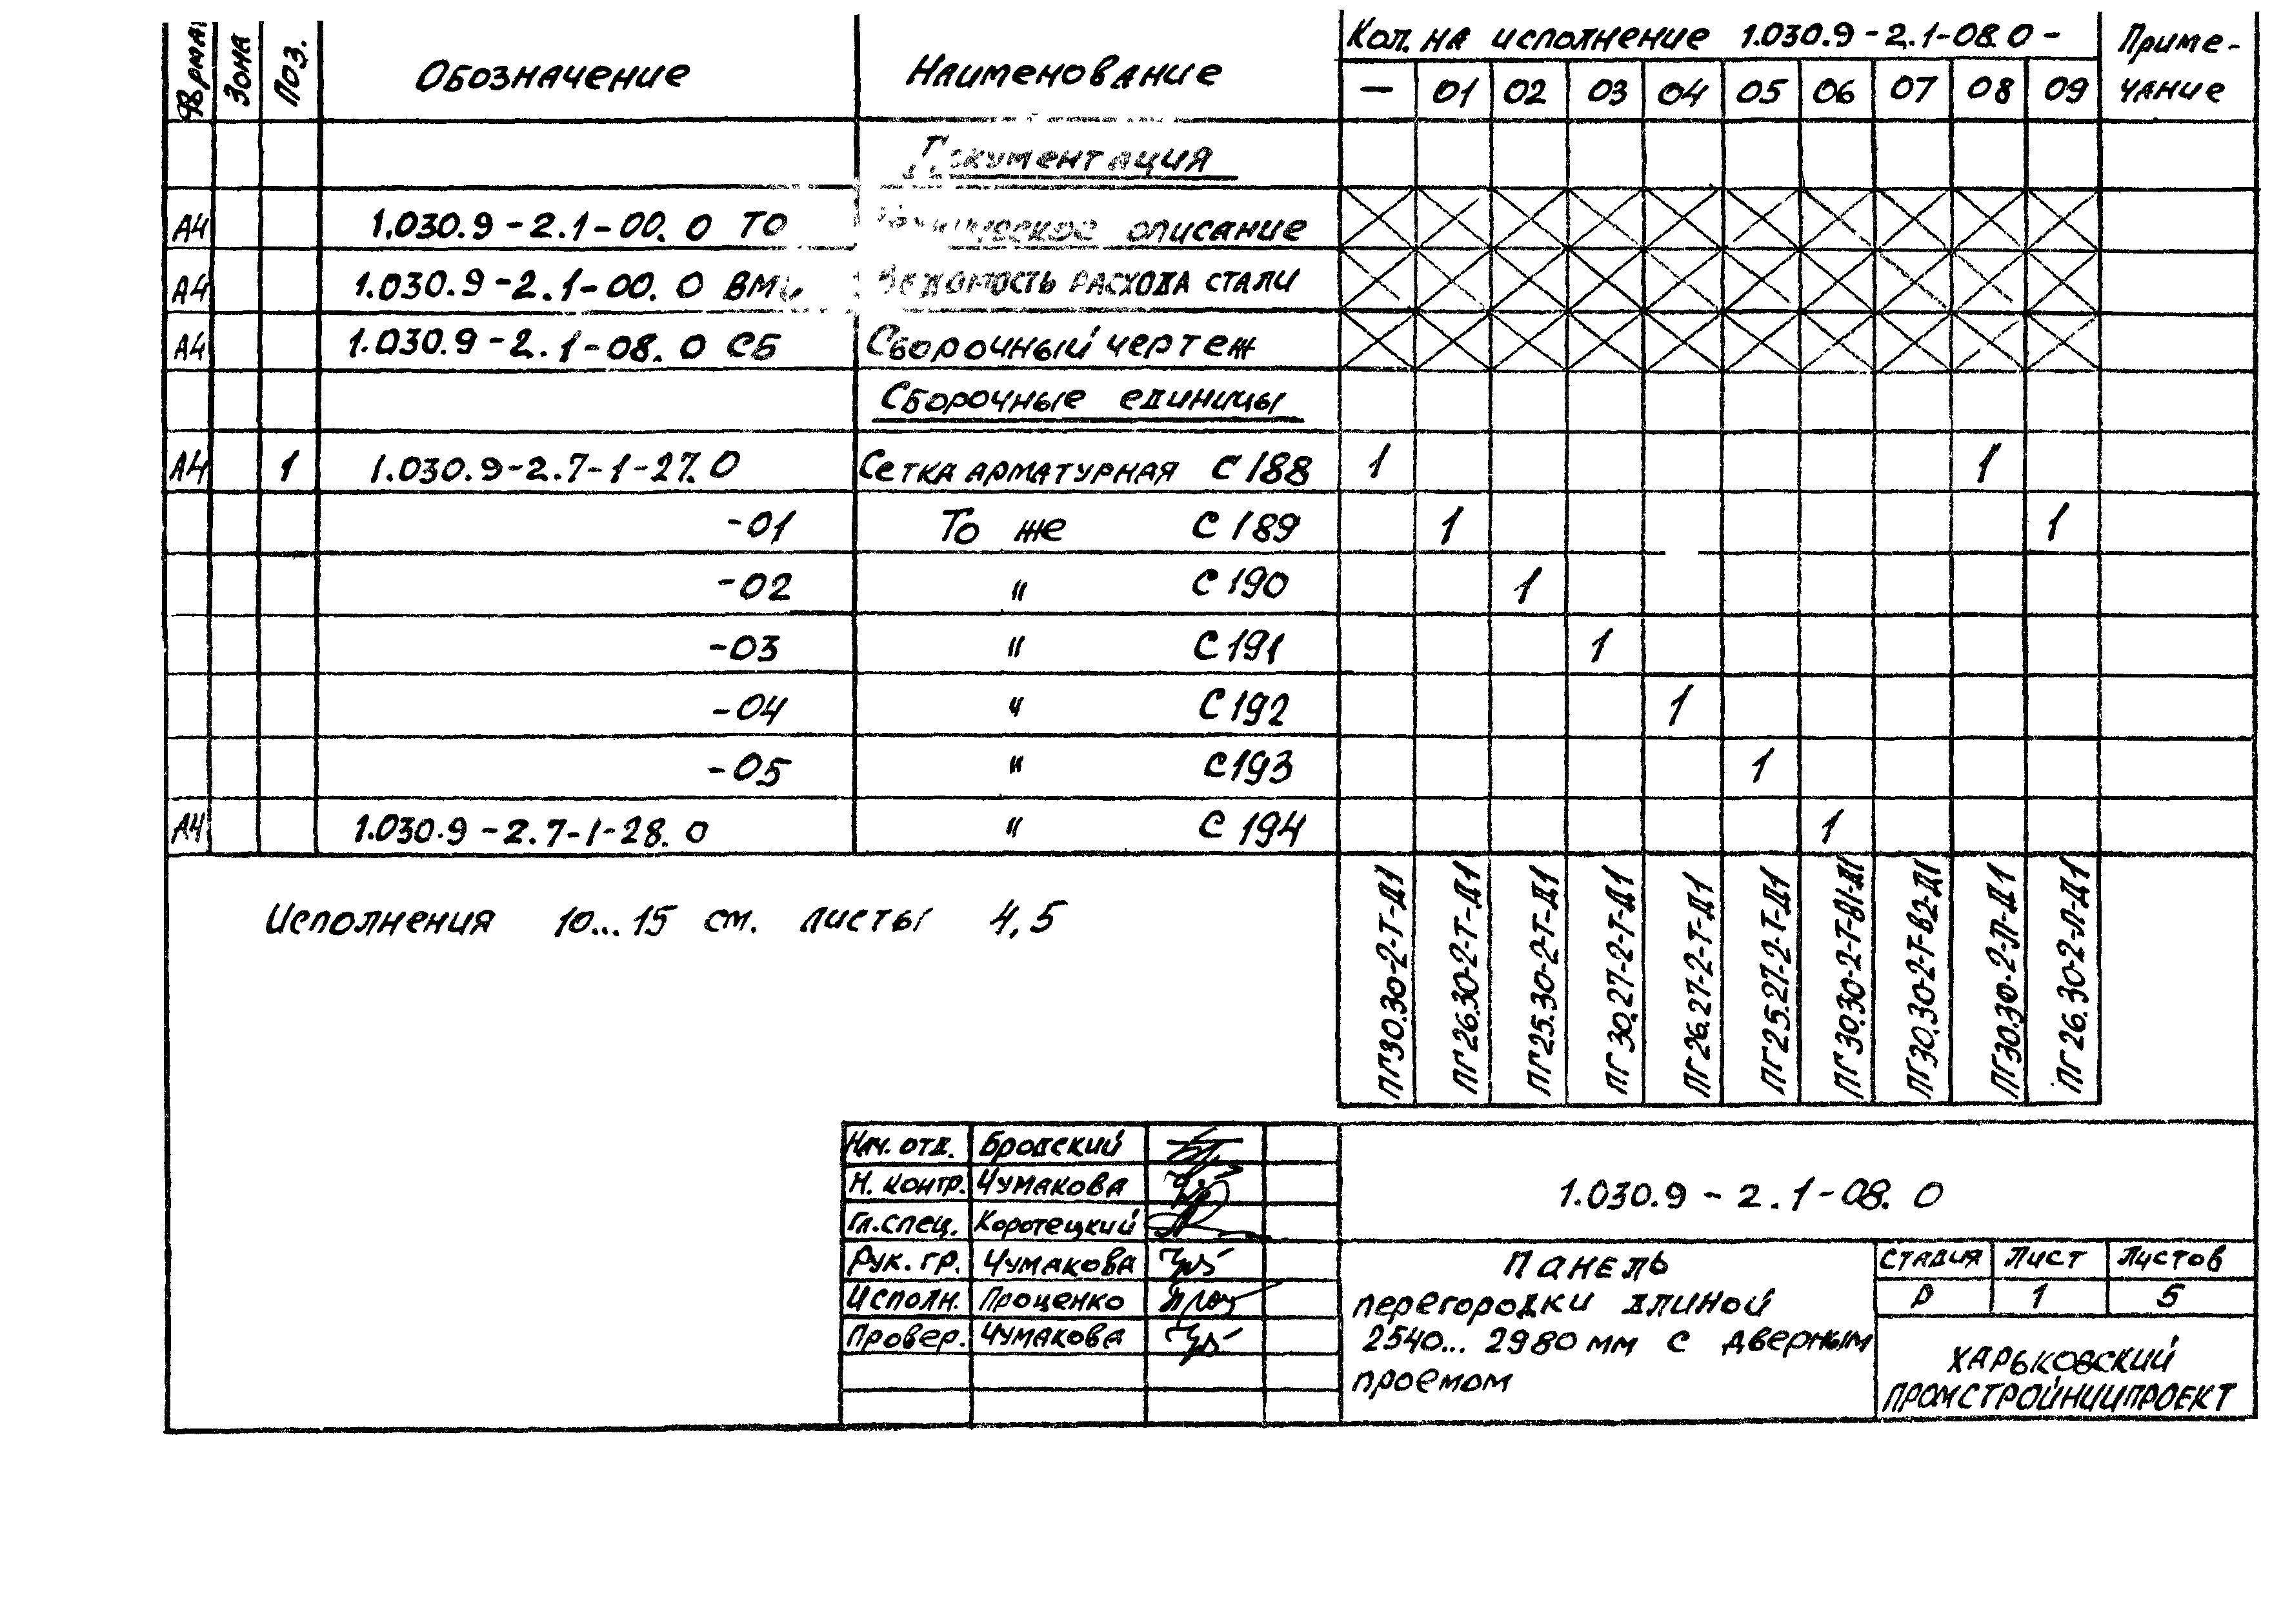 Формат Зона Поз. Обозначение Наименование Кол. на исполнение 1.030.9-2.1-08.0- Приме-
чание
— 01 02 03 04 05 06 07 08 09
Документация
А4 1.030.9-2.1-00.0 ТО Техническое описание
А4 1.030.9-2.1-00.0 ВМС Ведомость расхода стали
А4 1.030.9-2.1-08.0 СБ Сборочный чертеж
Сборочные единицы
А4 1 1.030.9-2.7-1-27.0 Сетка арматурная С 188 1 1
-01 То же С 189 1 1
-02 " С 190 1
-03 " С 191 1
-04 " С 192 1
-05 " С 193 1
А4 1.030.9-2.7-1-28.0 " С 194 1
Исполнения 10...15 см. листы 4,5
ПГ30.30-2-Т-Д1
ПГ26.30-2-Т-Д1
ПГ25.30-2-Т-Д1
ПГ30.27-2-Т-Д1
ПГ26.27-2-Т-Д1
ПГ25.27-2-Т-Д1
ПГ30.30-2-Т-В1-Д1
ПГ30.30-2-Т-В2-Д1
ПГ30.30-2-Л-Д1
ПГ26.30-2-Л-Д1
Нач. отд. Бродский
Н. контр. Чумакова
Гл. спец. Коротецкий
Рук. гр. Чумакова
Исполн. Проценко
Провер. Чумакова
1.030.9-2.1-08.0
Панель
перегородки длиной
2540...2980 мм с дверным
проемом
Стадия Лист Листов
Р 1 5
ХАРЬКОВСКИЙ
ПРОМСТРОЙНИИПРОЕКТ